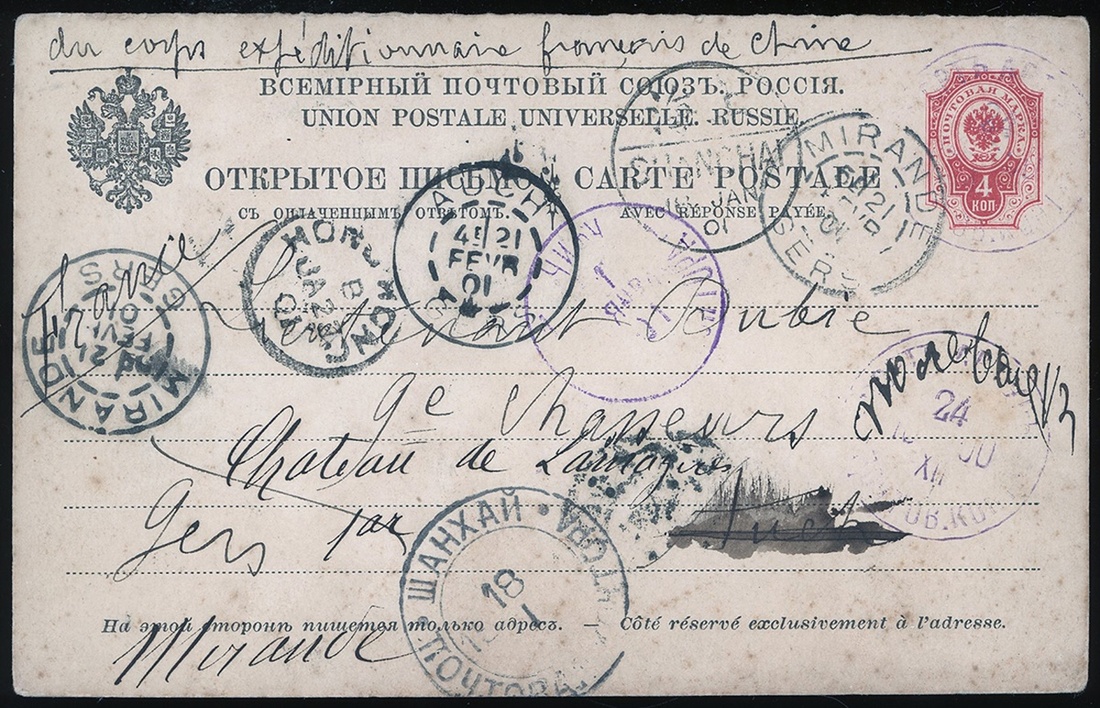 du corps expéditionnaire français de Chine
ВСЕМІРНЫЙ ПОЧТОВЫЙ СОЮЗЪ. РОССІЯ.
UNION POSTALE UNIVERSELLE. RUSSIE.
ПОЧТОВАЯ МАРКА.
4
КОП
ОТКРЫТОЕ ПИСЬМО. CARTE POSTALE
СЪ ОПЛАЧЕННЫМЪ ОТВѢТОМЪ. AVEC RÉPONSE PAYÉE.
SHANGHAI
JAN
01
MIRANDE
21
FEVR
01
GERS
AUCH
4E 21
FEVR
01
HONG KONG
B
JA 23
01
MIRANDE
21
FEVR
01
GERS
1
ЯНВАРЬ
France
Lieutenant
9e Chasseurs
Chateau de
Auch
Gers par
Mirande
24
XII
ШАНХАЙ
18
I
ПОЧТОВАЯ КОНТОРА
На этой сторонѣ пишется только адресъ. — Côté réservé exclusivement à l'adresse.